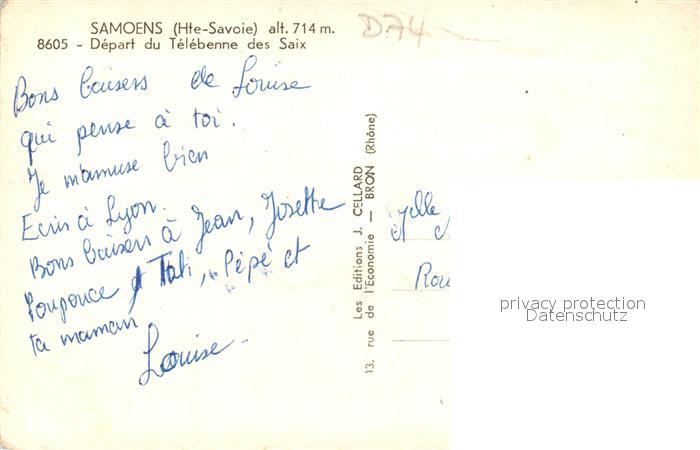 SAMOENS (Hte-Savoie) alt. 714 m.
8605 - Départ du Télébenne des Saix
D74
Bons baisers de Louise
qui pense à toi.
Je m'amuse bien
Ecris à Lyon.
Bons baisers à Jean, Josette
Poupouce Tati, Pépé et
ta maman
Louise.
Les Editions J. CELLARD
13, rue de l'Economie — BRON (Rhône)
Melle
Rou
privacy protection
Datenschutz